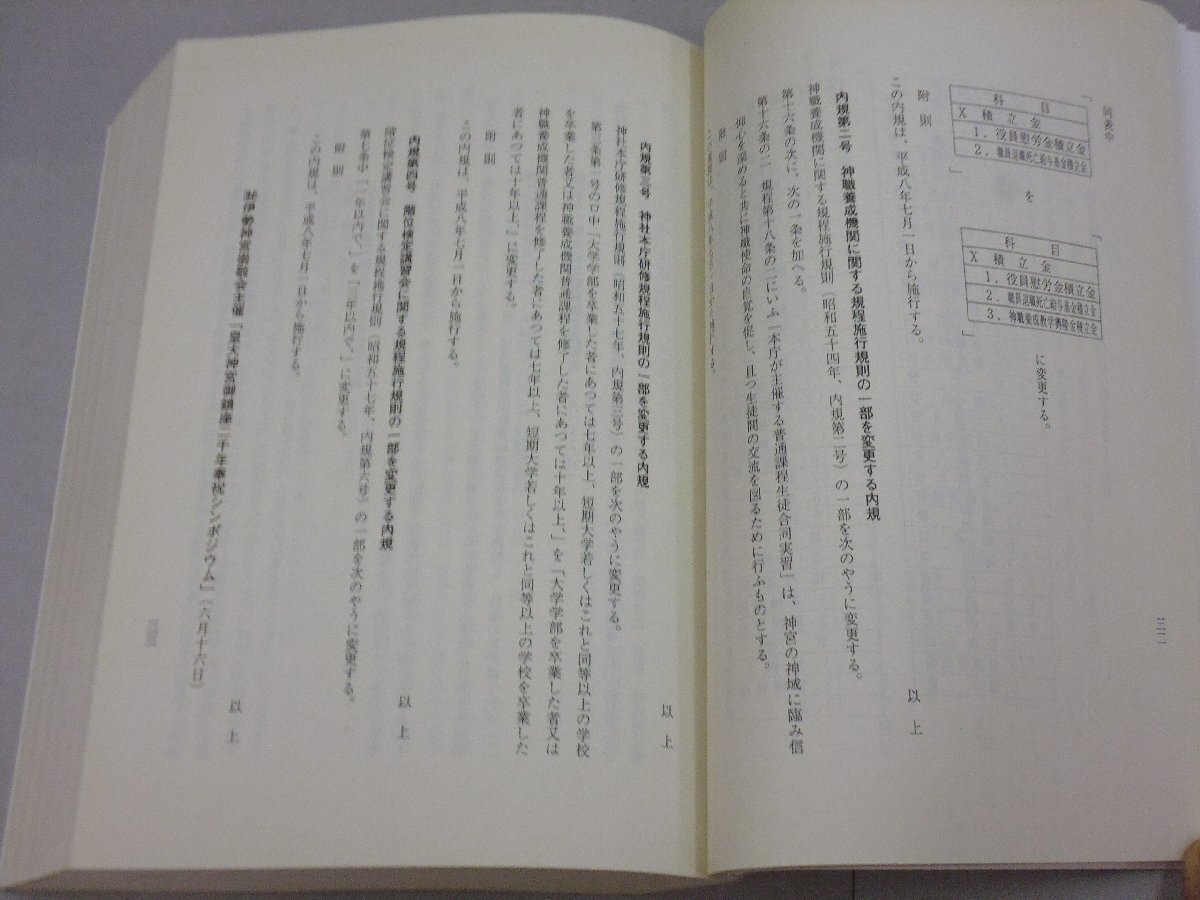 同表中
「
科目
X 積立金
1．役員慰労金積立金
2．職員退職死亡給与基金積立金
」
を
「
科目
X 積立金
1．役員慰労金積立金
2．職員退職死亡給与基金積立金
3．神職養成教学興隆金積立金
」
に変更する。
附則
この内規は、平成八年七月一日から施行する。
以上
内規第二号　神職養成機関に関する規程施行規則の一部を変更する内規
神職養成機関に関する規程施行規則（昭和五十四年、内規第二号）の一部を次のやうに変更する。
第十六条の次に、次の一条を加へる。
第十六条の二　規程第十八条の二にいふ「本庁が主催する普通課程生徒合同実習」は、神宮の神域に臨み信
仰心を深めると共に神職使命の自覚を促し、且つ生徒間の交流を図るために行ふものとする。
附則
三二
以上
内規第三号　神社本庁研修規程施行規則の一部を変更する内規
神社本庁研修規程施行規則（昭和五十七年、内規第三号）の一部を次のやうに変更する。
第二条第一号の中「大学学部を卒業した者にあつては七年以上、短期大学若しくはこれと同等以上の学校
を卒業した者又は神職養成機関普通課程を修了した者にあつては十年以上、」を「大学学部を卒業した者又は
神職養成機関普通課程を修了した者にあつては七年以上、短期大学若しくはこれと同等以上の学校を卒業した
者にあつては十年以上、」に変更する。
附則
この内規は、平成八年七月一日から施行する。
以上
内規第四号　階位検定講習会に関する規程施行規則の一部を変更する内規
階位検定講習会に関する規程施行規則（昭和五十七年、内規第六号）の一部を次のやうに変更する。
第七条中「二年以内で、」を「三年以内で、」に変更する。
附則
この内規は、平成八年七月一日から施行する。
以上
伊勢神宮崇敬会主催「皇大神宮御鎮座二千年奉祝シンポジウム」（六月十六日）